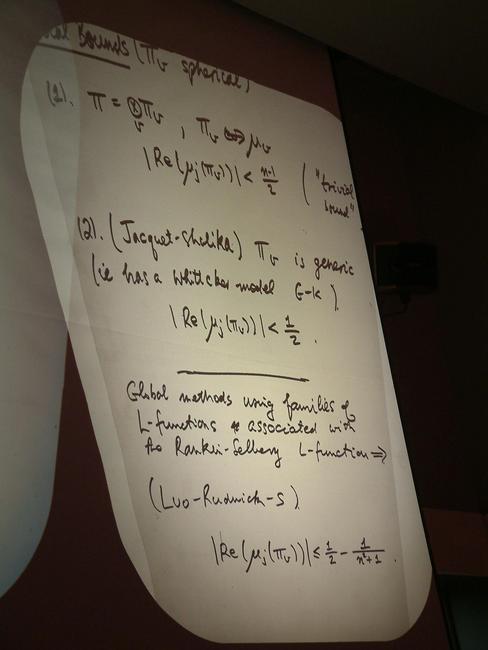 Bounds (π_v spherical)
(1). π = ⊗_v π_v , π_v ⟷ μ_v
|Re(μ_j(π_v))| < (n-1)/2 ( "trivial
bound"
(2). (Jacquet-Shalika) π_v is generic
(ie has a whittaker model G-K).
|Re(μ_j(π_v))| < 1/2 .
Global methods using families of
L-functions associated with
the Rankin-Selberg L-function ⇒
(Luo-Rudnick-S).
|Re(μ_j(π_v))| ≤ 1/2 - 1/(n²+1) .